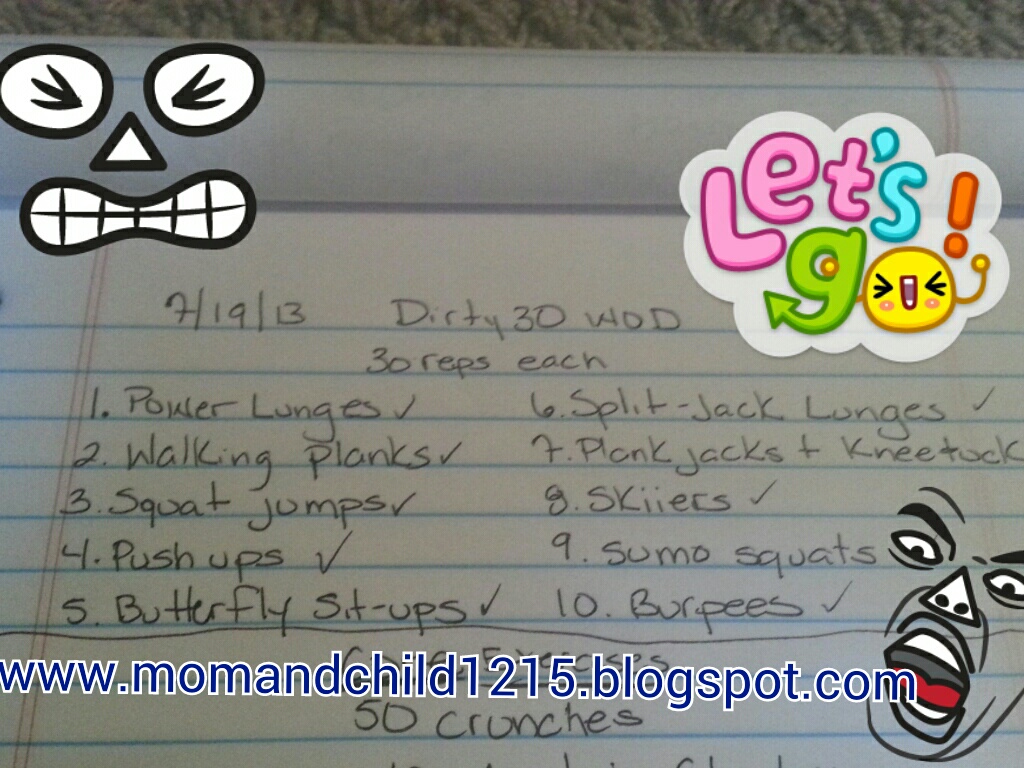 Let's
go!
7/19/13 Dirty 30 WOD
30 reps each
1. Power Lunges ✓ 6. Split-Jack Lunges ✓
2. Walking Planks ✓ 7. Plank jacks + Kneetuck
3. Squat jumps ✓ 8. Skiiers ✓
4. Push ups ✓ 9. Sumo squats
5. Butterfly Sit-ups ✓ 10. Burpees ✓
Exercises
www.momandchild1215.blogspot.com
50 crunches